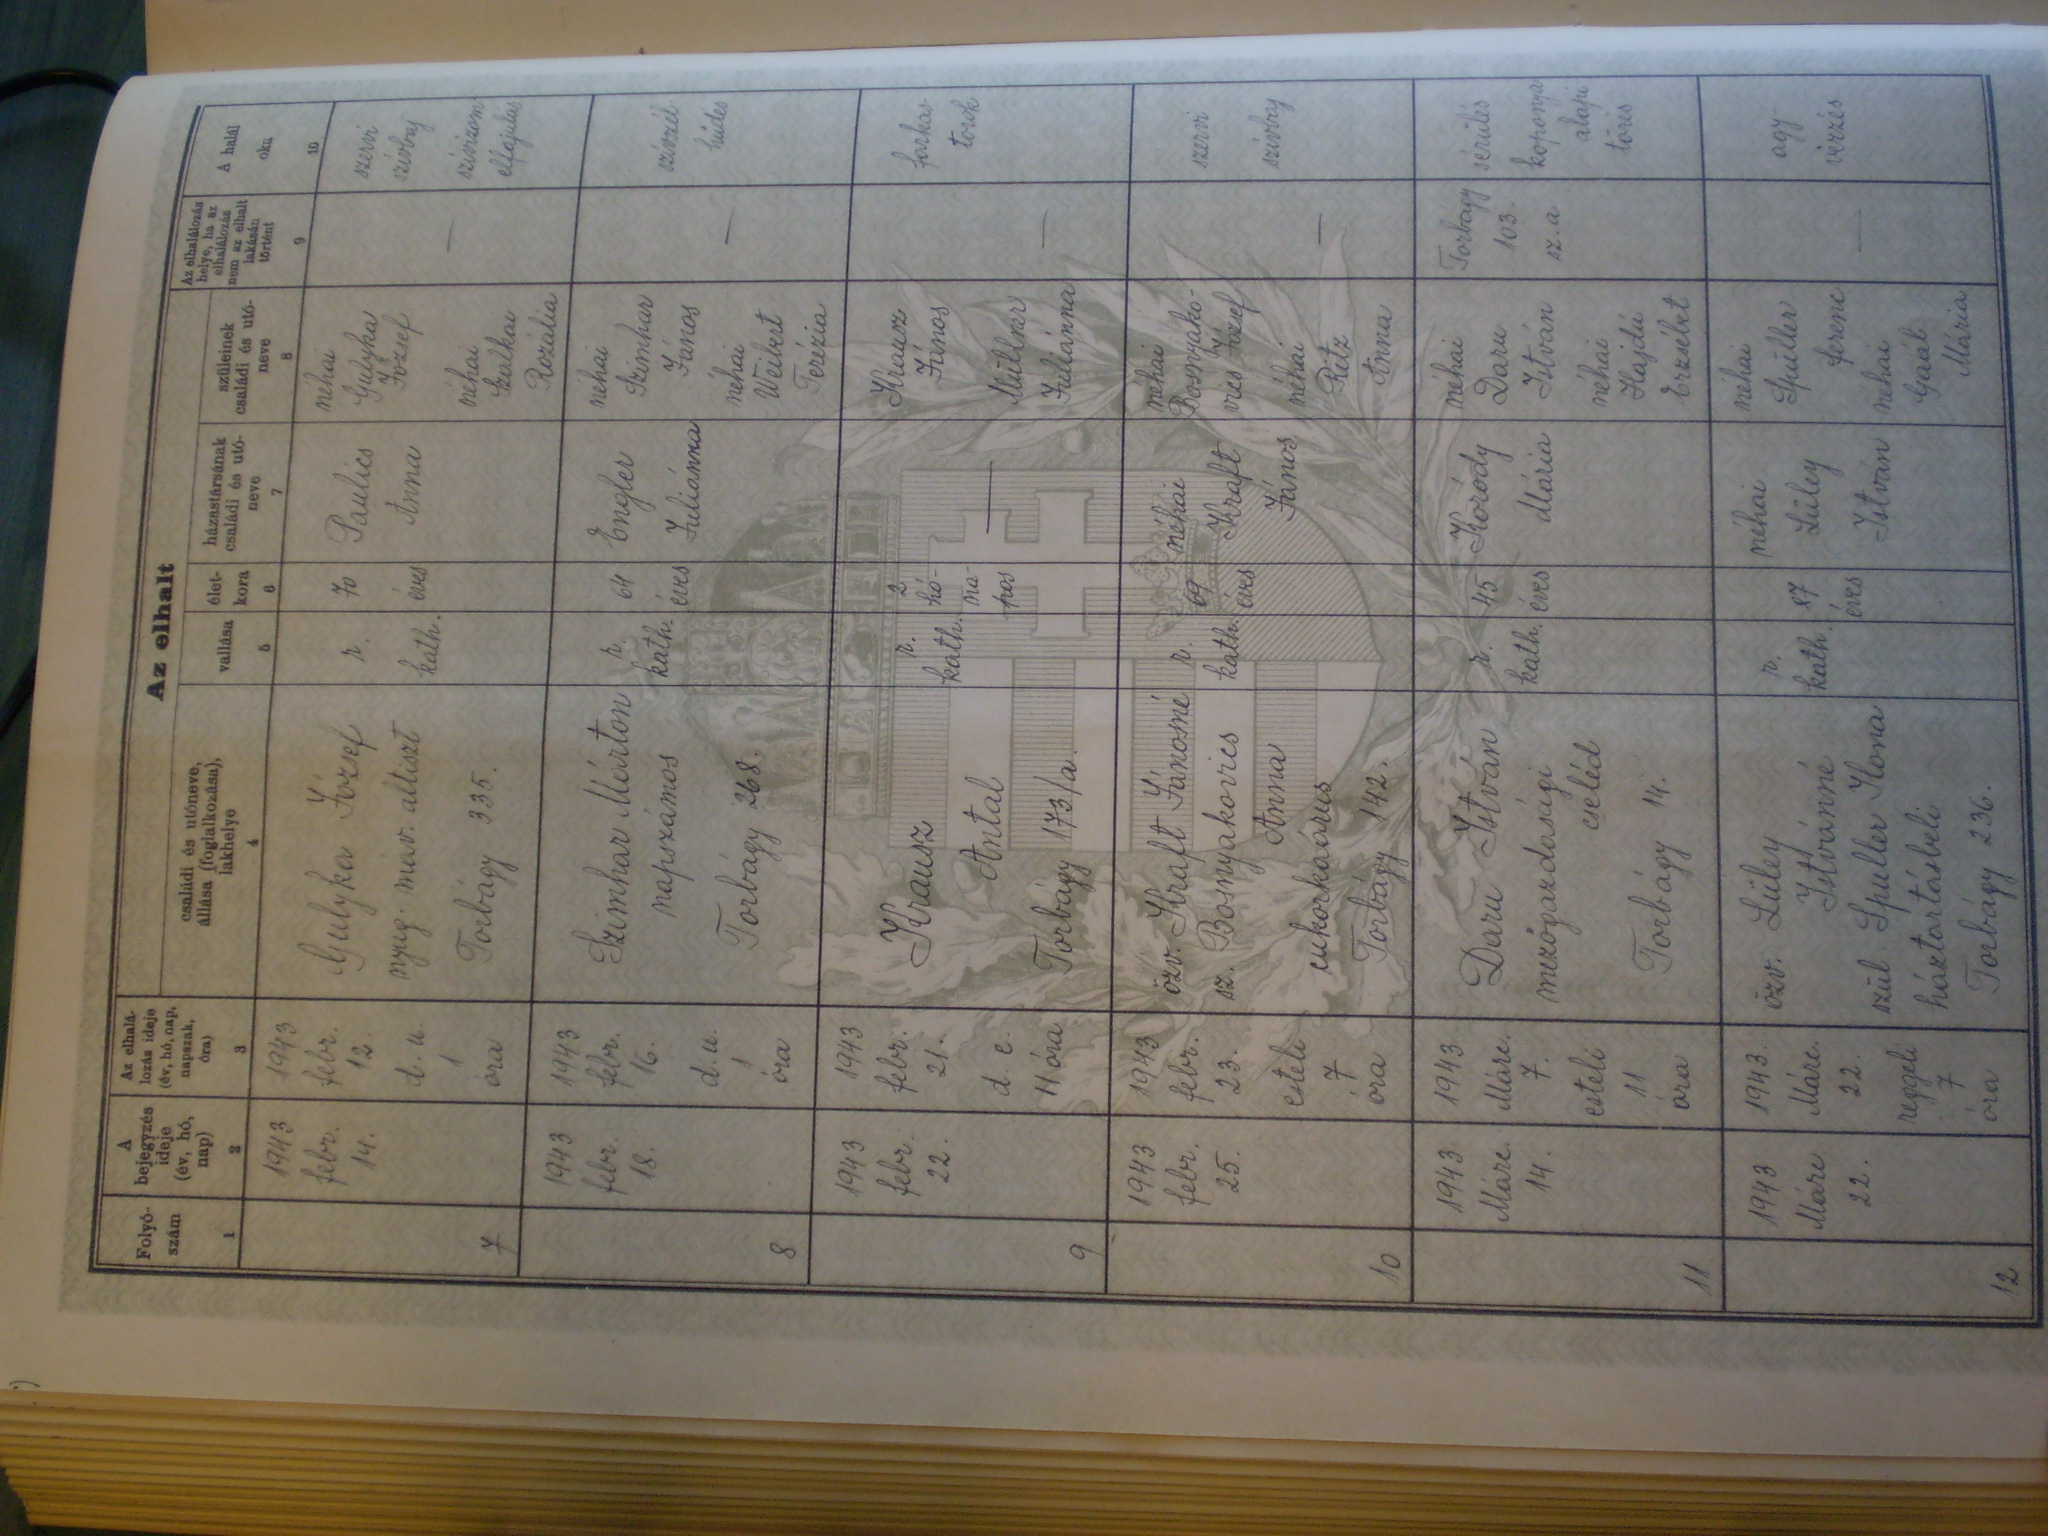 Az elhalt
Folyó-
szám
A
bejegyzés
ideje
(év, hó,
nap)
Az elhalá-
lozás ideje
(év, hó, nap,
napszak,
óra)
családi és utóneve,
állása (foglalkozása),
lakhelye
vallása
élet-
kora
házastársának
családi és utó-
neve
szüleinek
családi és utó-
neve
Az elhalálozás
helye, ha az
elhalálozás
nem az elhalt
lakásán
történt
A halál
oka
1
2
3
4
5
6
7
8
9
10
7
1943
febr.
14.
1943
febr.
12.
d. u.
1
óra
Gulyka József
nyug. máv. altiszt
Torbágy 335.
r.
kath.
70
éves
Paulics
Anna
néhai
Gulyka
József
néhai
Szalkai
Rozália
—
szervi
szívbaj
szívizom
elfajulás
8
1943
febr.
18.
1943
febr.
16.
d. u.
1
óra
Szimhar Márton
napszámos
Torbágy 268.
r.
kath.
64
éves
Engler
Juliánna
néhai
Szimhar
János
néhai
Weibert
Terézia
—
szívszél
hűdés
9
1943
febr.
22.
1943
febr.
21.
d. e.
11 óra
Krausz
Antal
Torbágy 173/a.
r.
kath.
2
hó-
na-
pos
—
Krausz
János
Müllner
Juliánna
—
farkas
torok
10
1943
febr.
25.
1943
febr.
23.
esteli
7
óra
özv. Kraft Jánosné
sz. Bosnyakovics
Anna
cukorkaárus
Torbágy 142.
r.
kath.
69
éves
néhai
Kraft
János
néhai
Bosnyako-
vics József
néhai
Retz
Anna
—
szervi
szívbaj
11
1943
Márc.
14.
1943
Márc.
7.
esteli
11
óra
Daru István
mezőgazdasági
cseléd
Torbágy 14.
r.
kath.
45
éves
Koródy
Mária
néhai
Daru
István
néhai
Hajdú
Erzsébet
Torbágy
103.
sz. a
sérülés
koponya
alapi
törés
12
1943
Márc.
22.
1943.
Márc.
22.
reggeli
7
óra
özv. Lüley
Istvánné
szül. Spuller Ilona
háztartásbeli
Torbágy 236.
r.
kath.
87
éves
néhai
Lüley
István
néhai
Spüller
Ferenc
néhai
Gaal
Mária
—
agy
vérzés